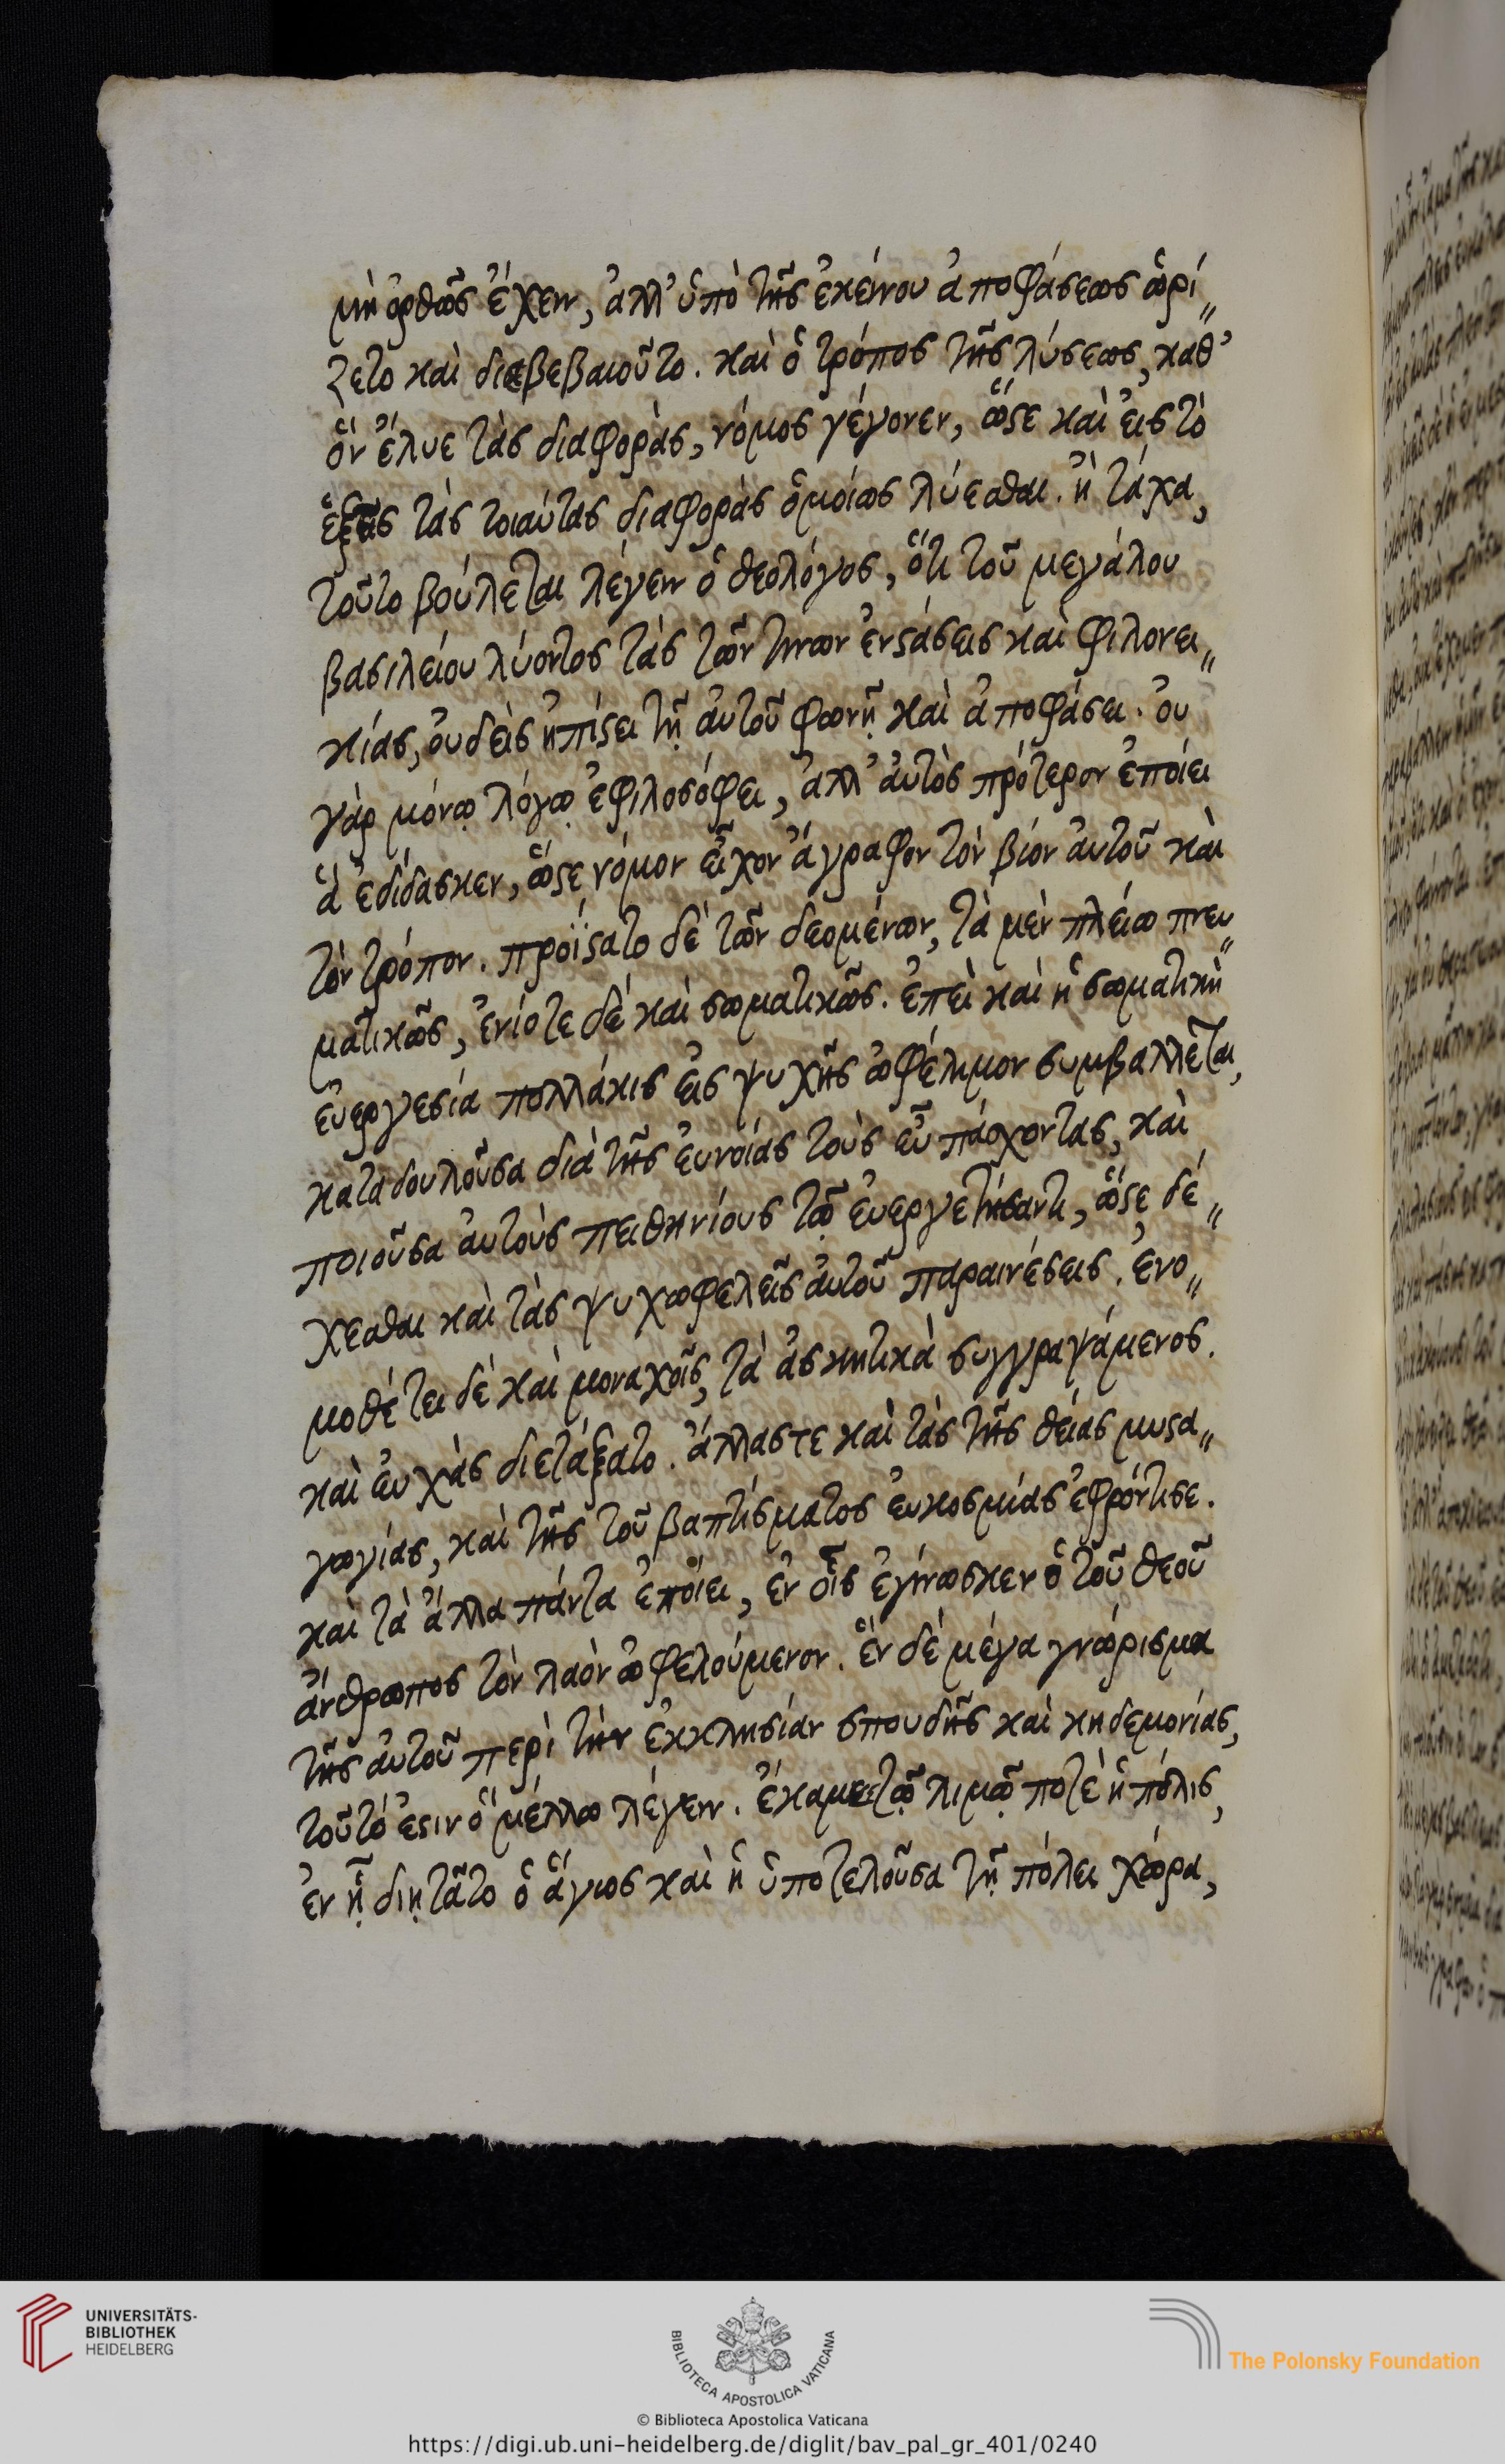 μὴ ὀρθῶς ἔχειν, ἀλλ' ὑπὸ τῆς ἐκείνου ἀποφάσεως ὡρί„
ζετο καὶ διεβεβαιοῦτο. καὶ ὁ τρόπος τῆς λύσεως, καθ'
ὃν ἔλυε τὰς διαφορὰς, νόμος γέγονεν, ὥστε καὶ εἰς τὸ
ἑξῆς τὰς τοιαύτας διαφορὰς ὁμοίως λύεσθαι. ἢ τάχα,
τοῦτο βούλεται λέγειν ὁ θεολόγος, ὅτι τοῦ μεγάλου
βασιλείου λύοντος τὰς τῶν τινων ἐνστάσεις καὶ φιλονει„
κίας, οὐδεὶς ἠπίστει τῇ αὐτοῦ φωνῇ καὶ ἀποφάσει. οὐ
γὰρ μόνῳ λόγῳ ἐφιλοσόφει, ἀλλ' αὐτὸς πρότερον ἐποίει
ἃ ἐδίδασκεν, ὥστε νόμον εἶχον ἄγραφον τὸν βίον αὐτοῦ καὶ
τὸν τρόπον. προΐστατο δὲ τῶν δεομένων, τὰ μὲν πλείω πνευ„
ματικῶς, ἐνίοτε δὲ καὶ σωματικῶς. ἐπεὶ καὶ ἡ σωματικὴ
εὐεργεσία πολλάκις εἰς ψυχῆς ὠφέλιμον συμβάλλεται,
καταδουλοῦσα διὰ τῆς εὐνοίας τοὺς εὖ πάσχοντας, καὶ
ποιοῦσα αὐτοὺς πειθηνίους τῷ εὐεργετήσαντι, ὥστε δέ„
χεσθαι καὶ τὰς ψυχωφελεῖς αὐτοῦ παραινέσεις. ἐνο„
μοθέτει δὲ καὶ μοναχοῖς, τὰ ἀσκητικὰ συγγραψάμενος.
καὶ εὐχὰς διετάξατο. ἄλλας τε καὶ τὰς τῆς θείας μυστα„
γωγίας, καὶ τῆς τοῦ βαπτίσματος εὐκοσμίας ἐφρόντισε.
καὶ τὰ ἄλλα πάντα ἐποίει, ἐν οἷς ἐγίνωσκεν ὁ τοῦ θεοῦ
ἄνθρωπος τὸν λαὸν ὠφελούμενον. ἓν δὲ μέγα γνώρισμα
τῆς αὐτοῦ περὶ τὴν ἐκκλησίαν σπουδῆς καὶ κηδεμονίας,
τοῦτό ἐστιν ὃ μέλλω λέγειν. ἔκαμε τῷ λιμῷ ποτὲ ἡ πόλις,
ἐν ᾗ διῃτᾶτο ὁ ἅγιος καὶ ἡ ὑποτελοῦσα τῇ πόλει χώρα,
UNIVERSITÄTS-
BIBLIOTHEK
HEIDELBERG
BIBLIOTECA APOSTOLICA VATICANA
The Polonsky Foundation
© Biblioteca Apostolica Vaticana
https://digi.ub.uni-heidelberg.de/diglit/bav_pal_gr_401/0240